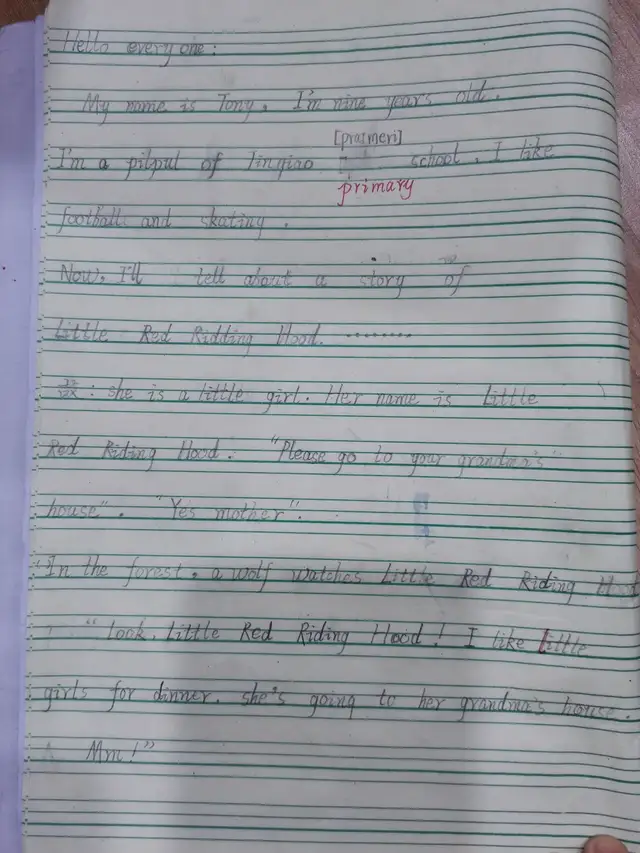 Hello everyone:
My name is Tony. I'm nine years old.
[praimeri]
I'm a pilpul of Jinqiao school. I like
primary
football and skating.
Now, I'll tell about a story of
Little Red Ridding Hood. ………
: she is a little girl. Her name is Little
Red Riding Hood. "Please go to your grandma's"
house". "Yes mother".
"In the forest. a wolf watches Little Red Riding Hood
"Look, Little Red Riding Hood! I like little
girls for dinner. she's going to her grandma's house.
Mm!"